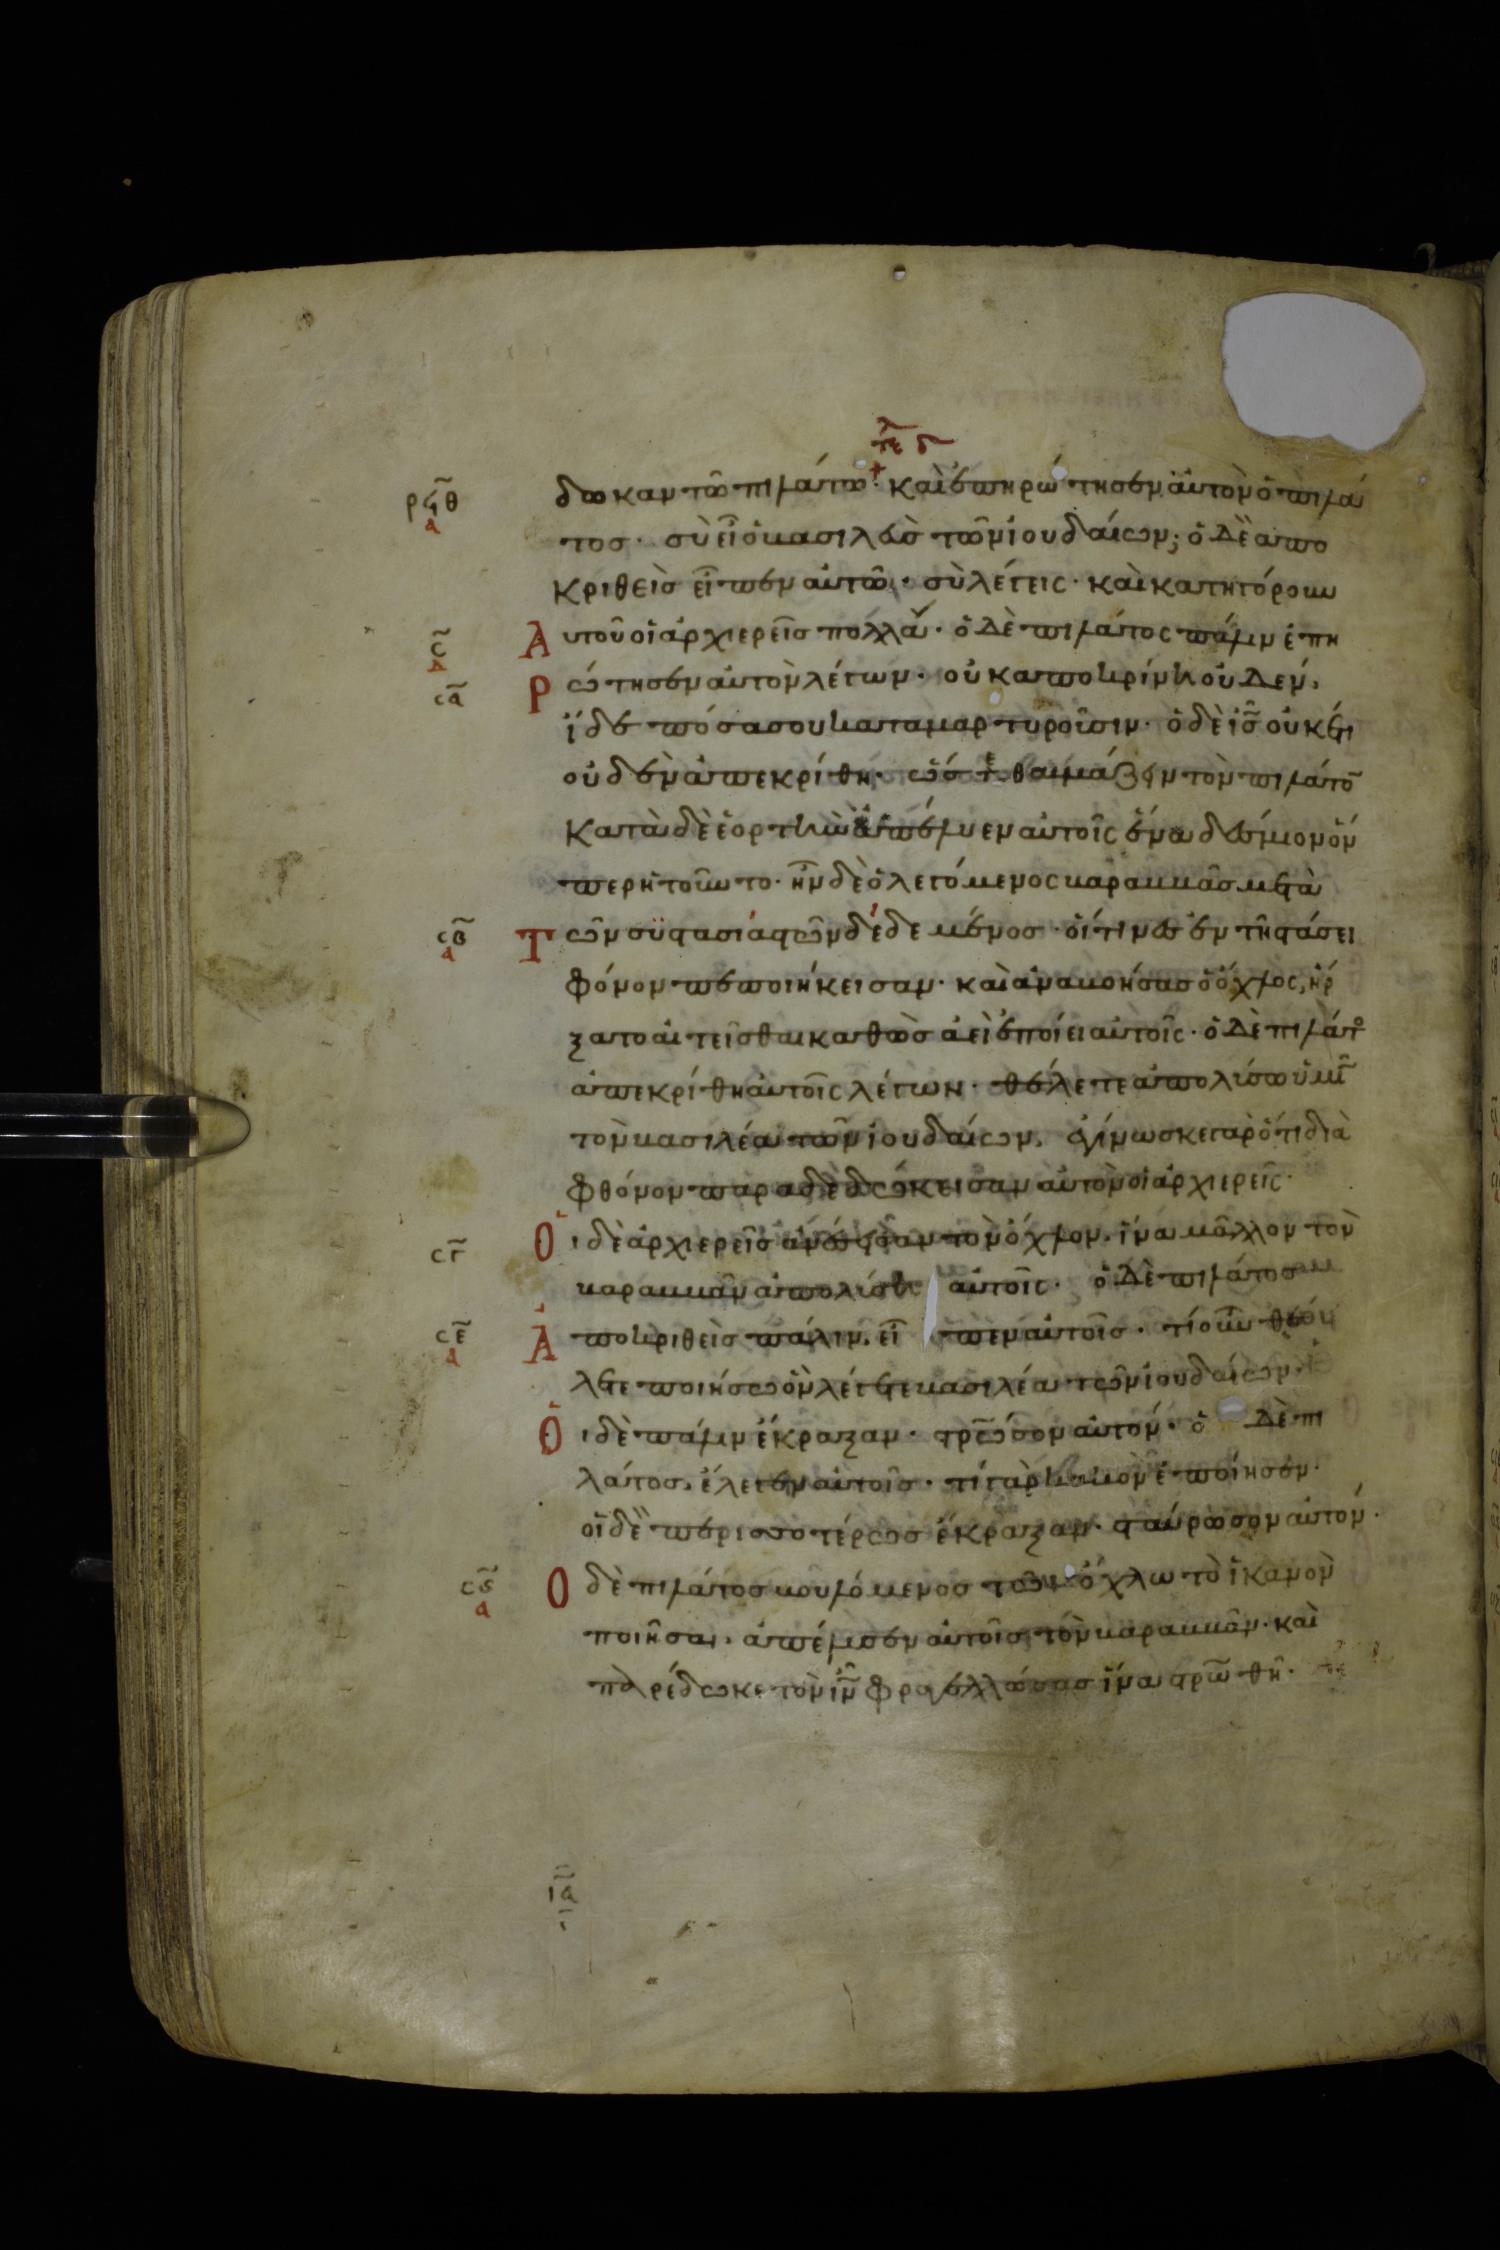 τε δ
ρϟθ α δωκαν τῶ πιλάτω· καὶ ἐπηρώτησεν αὐτὸν ὁ πιλά
τοσ· σὺ εἶ ὁ βασιλεὺσ τῶν ἰουδαίων; ὁ δὲ ἀπο
κριθεὶσ εἶπεν αὐτῶ· σὺ λέγεις· καὶ κατηγόρουν
σ α Αυτοῦ οἱ ἀρχιερεῖσ πολλά· ὁ δὲ πιλάτος πάλιν ἐπη
σα Ρώτησεν αὐτὸν λέγων· οὐκ ἀποκρίνη οὐδέν,
ἴδε πόσα σου καταμαρτυροῦσιν· ὁ δὲ ις οὐκέτι
οὐδὲν ἀπεκρίθη· ὥστε θαυμάζειν τὸν πιλάτο̅
Κατὰ δὲ ἑορτὴν ἀπέλυεν αὐτοῖς ἕνα δέσμιον ὅν
περ ἠτοῦντο· ἦν δὲ ὁ λεγόμενος βαραββᾶσ μετὰ
σβ α Τῶν συστασιαστῶν δεδεμένοσ· οἵτινεσ ἐν τῆ στάσει
φόνον πεποιήκεισαν· καὶ ἀναβοήσασ ὁ ὄχλος, ἤρ
ξατο αἰτεῖσθαι καθὼσ ἀεὶ ἐποίει αὐτοῖς· ὁ δὲ πιλάτο
ἀπεκρίθη αὐτοῖς λέγων· θέλετε ἀπολύσω ὑμῖ
τὸν βασιλέα τῶν ἰουδαίων, ἐγίνωσκε γὰρ ὅτι διὰ
φθόνον παραδεδώκεισαν αὐτὸν οἱ ἀρχιερεῖς·
σγ Οι δὲ ἀρχιερεῖσ ἀνέσεισαν τὸν ὄχλον, ἵνα μᾶλλον τὸν
βαραββᾶν ἀπολύση αὐτοῖς· ὁ δὲ πιλάτοσ
σε α Αποκριθεὶσ πάλιν, εἶπεν αὐτοῖσ· τί οὖν θέ
λετε ποιήσω ὃν λέγετε βασιλέα τῶν ἰουδαίων·
Οι δὲ πάλιν ἔκραξαν· στρωσον αὐτόν· ὁ δὲ πι
λάτοσ, ἔλεγεν αὐτοῖσ· τί γὰρ κακὸν ἐποίησεν·
οἱ δὲ περισσοτέρωσ ἔκραξαν· σταύρωσον αὐτόν·
σϛ α Ο δὲ πιλάτοσ βουλόμενοσ τῶ ὄχλω τὸ ἱκανὸν
ποιῆσαι, ἀπέλυσεν αὐτοῖσ τὸν βαραββᾶν· καὶ
παρέδωκε τὸν ιν φραγελλώσασ ἵνα στρωθῆ·
ια